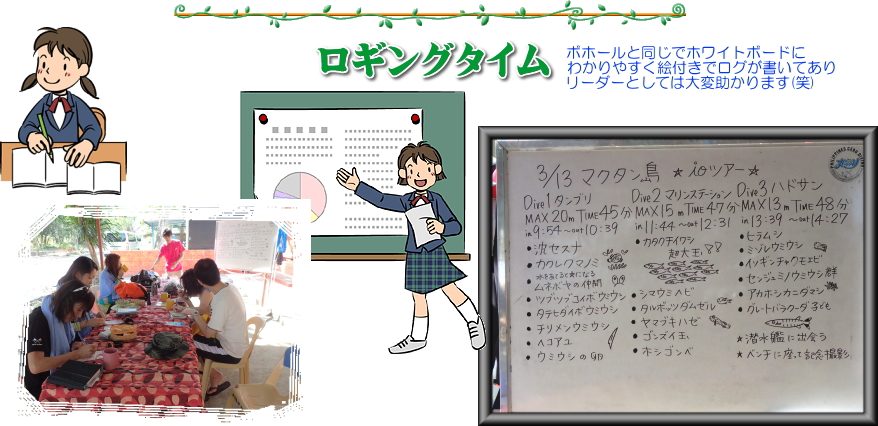 ロギングタイム
ボホールと同じでホワイトボードに
わかりやすく絵付きでログが書いてあり
リーダーとしては大変助かります(笑)
3/13 マクタン島 ☆ioツアー☆
Dive1 タンブリ
MAX 20m TIME 45分
in 9:54 〜out 10:39
• 沈セスナ
• カクレクマノミ
• ムネボヤの仲間
• ツブツブコイボウミウシ
• タテヒダイボウミウシ
• チリメンウミウシ
• ヘコアユ
• ウミウシの
Dive2 マリンステーション
MAX 15m TIME 47分
in 11:44 〜out 12:31
• カタクチイワシ
超大玉!!
• シマウミヘビ
• タルボッツダムゼル
• ヤマブキハゼ
• ゴンズイ玉
• ホシゴンベ
Dive3 ハドサン
MAX 13m TIME 48分
in 13:39 〜out 14:27
• ヒラムシ
• ミゾレウミウシ
• イソギンチャクモエビ
• センジュミノウミウシ 群
• アカホシカニダマシ
• グレートバラクーダ 子ども
★ 潜水艦に出会う
★ ベンチに座って記念撮影